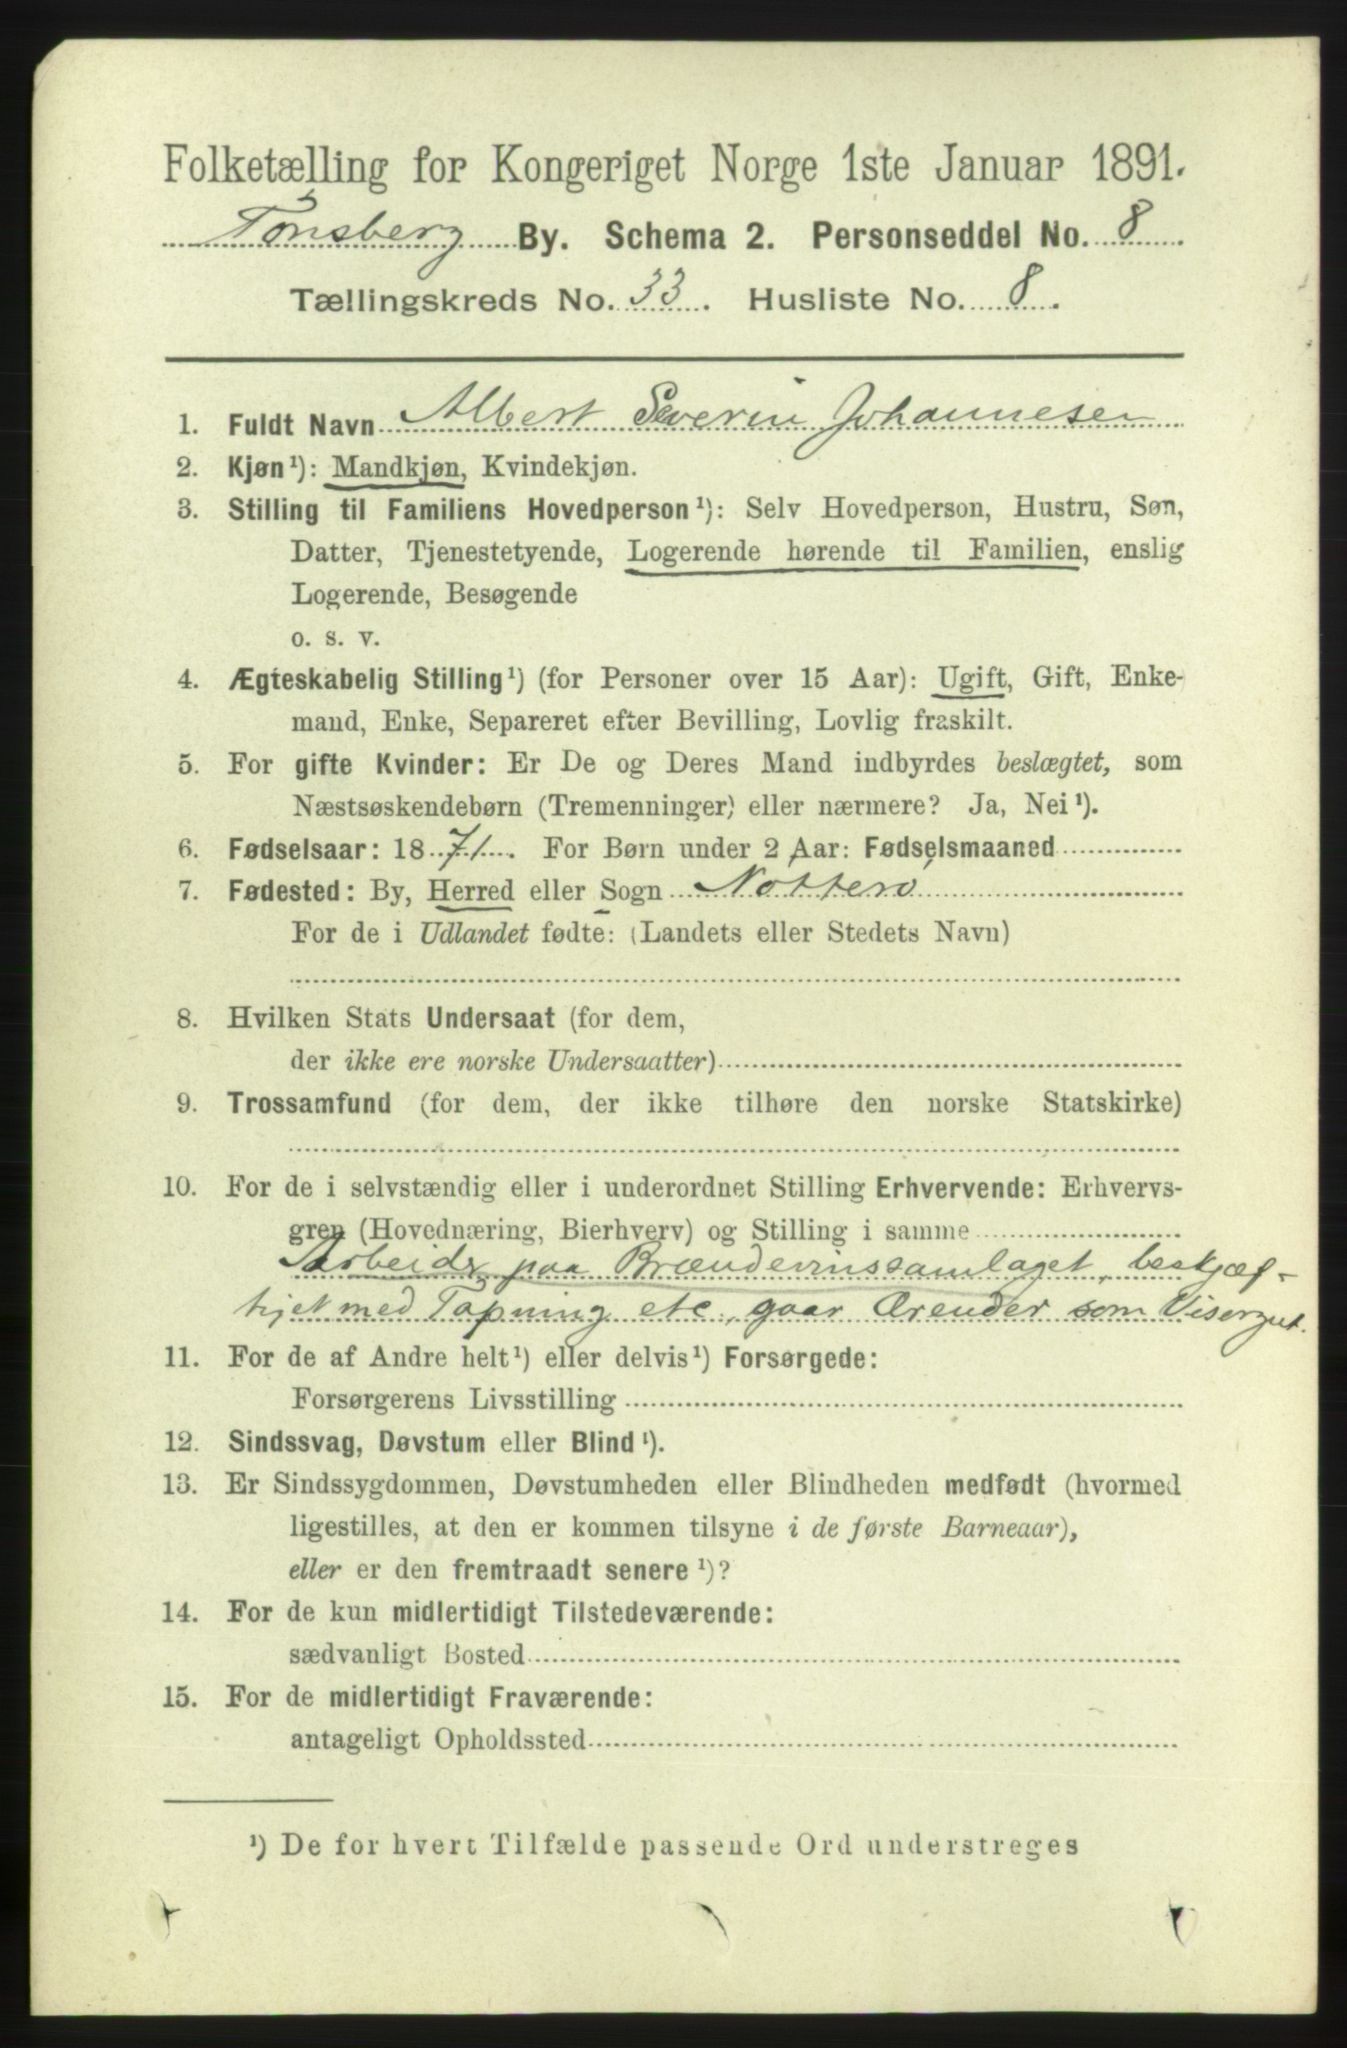 Folketælling for Kongeriget Norge 1ste Januar 1891.
Tønsberg By. Schema 2. Personseddel No. 8
Tællingskreds No. 33. Husliste No. 8.
1. Fuldt Navn Albert Severin Johannesen
2. Kjøn¹): Mandkjøn, Kvindekjøn.
3. Stilling til Familiens Hovedperson¹): Selv Hovedperson, Hustru, Søn,
Datter, Tjenestetyende, Logerende hørende til Familien, enslig
Logerende, Besøgende
o. s. v.
4. Ægteskabelig Stilling¹) (for Personer over 15 Aar): Ugift, Gift, Enke-
mand, Enke, Separeret efter Bevilling, Lovlig fraskilt.
5. For gifte Kvinder: Er De og Deres Mand indbyrdes beslægtet, som
Næstsøskendebørn (Tremenninger) eller nærmere? Ja, Nei¹).
6. Fødselsaar: 1871. For Børn under 2 Aar: Fødselsmaaned
7. Fødested: By, Herred eller Sogn Nøtterø
For de i Udlandet fødte: (Landets eller Stedets Navn)
8. Hvilken Stats Undersaat (for dem,
der ikke ere norske Undersaatter)
9. Trossamfund (for dem, der ikke tilhøre den norske Statskirke)
10. For de i selvstændig eller i underordnet Stilling Erhvervende: Erhvervs-
gren (Hovednæring, Bierhverv) og Stilling i samme
Arbeider paa Brændevinssamlaget, beskjæf-
tiget med Tapning etc, gaar Ærender som Visergut.
11. For de af Andre helt¹) eller delvis¹) Forsørgede:
Forsørgerens Livsstilling
12. Sindssvag, Døvstum eller Blind¹).
13. Er Sindssygdommen, Døvstumheden eller Blindheden medfødt (hvormed
ligestilles, at den er kommen tilsyne i de første Barneaar),
eller er den fremtraadt senere¹)?
14. For de kun midlertidigt Tilstedeværende:
sædvanligt Bosted
15. For de midlertidigt Fraværende:
antageligt Opholdssted
¹) De for hvert Tilfælde passende Ord understreges